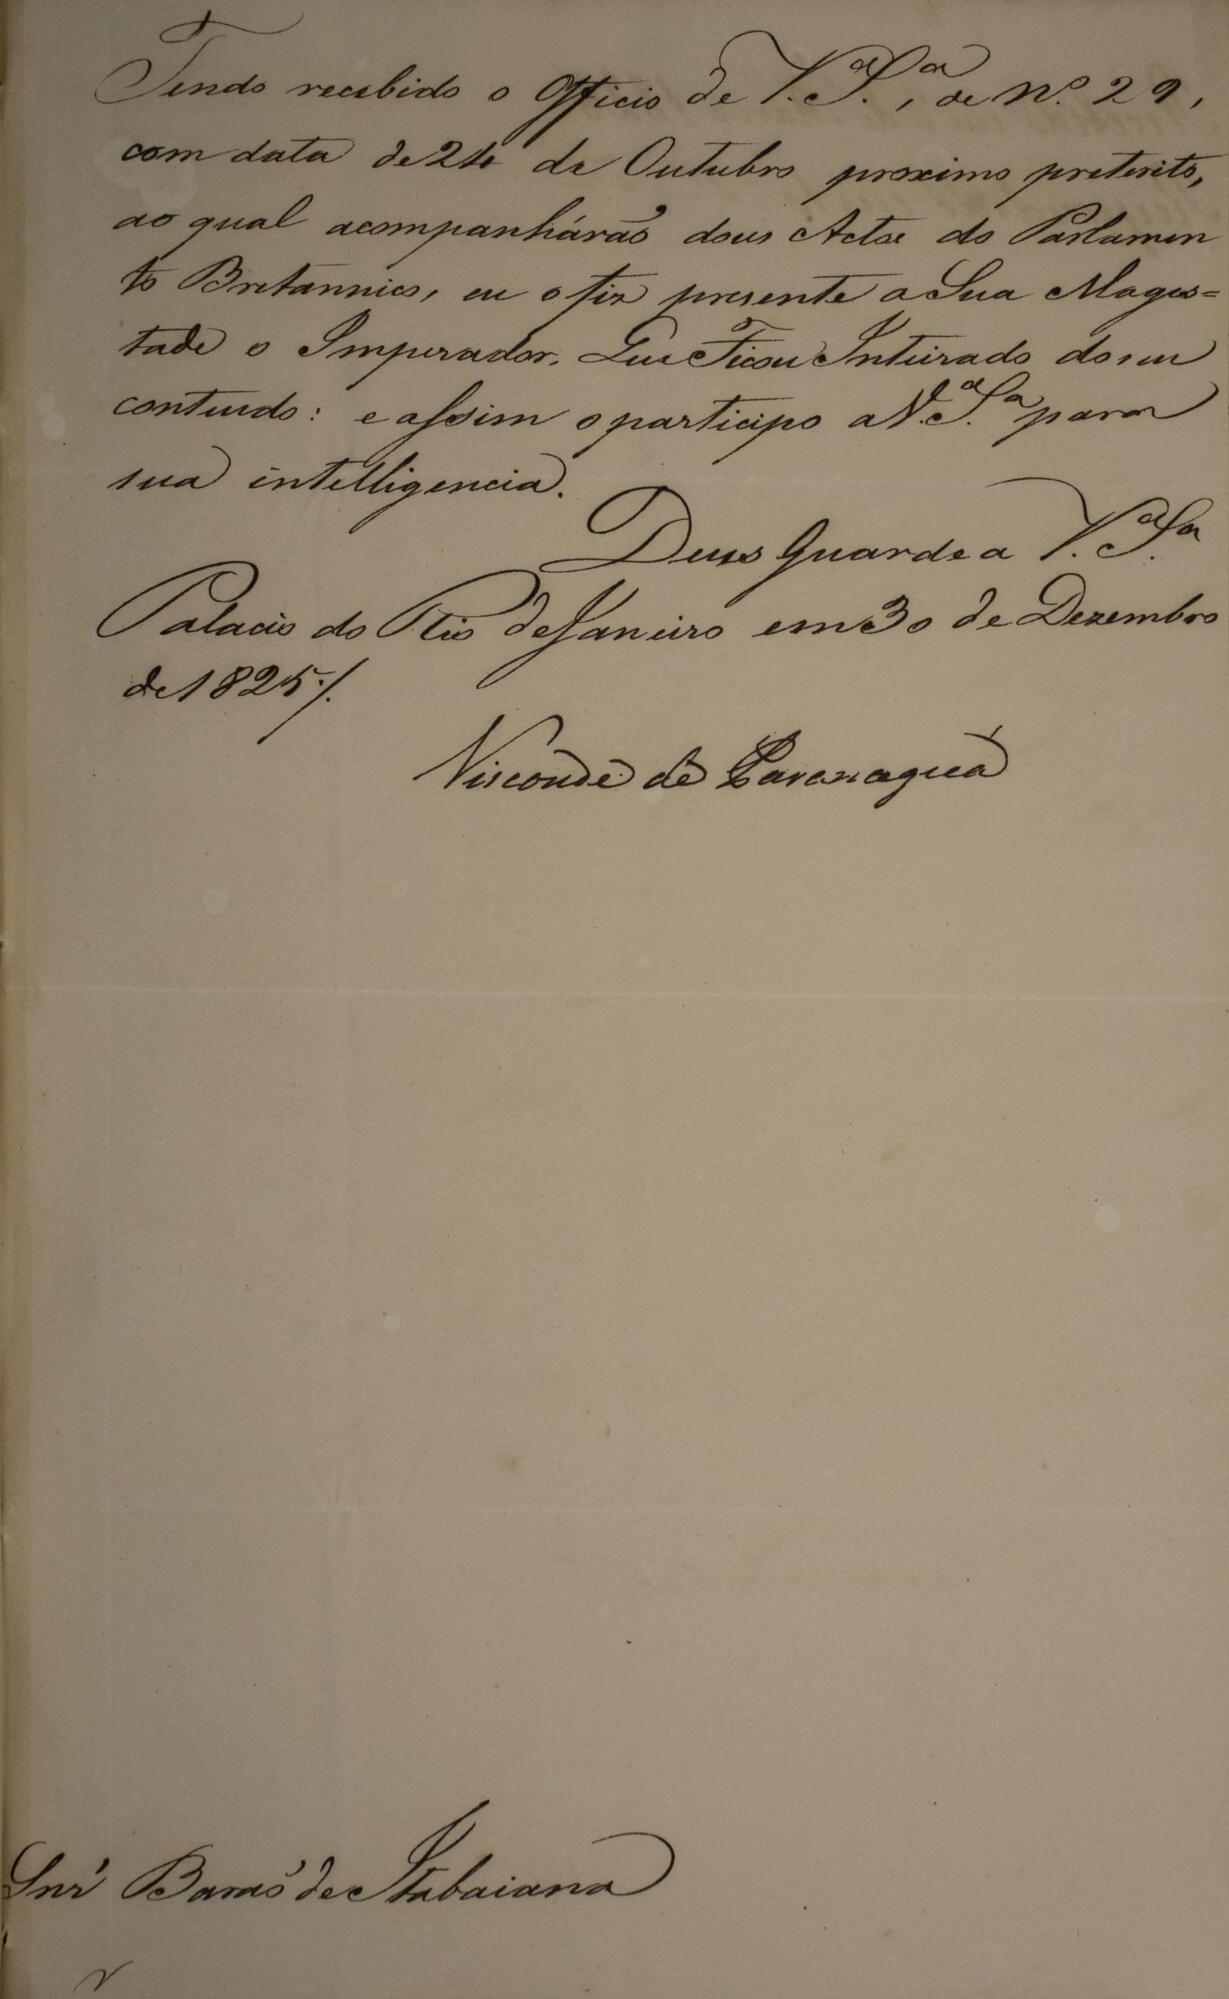 Tendo recebido o Officio de V.ª S.ª, de N.º 29,
com data de 24 de Outubro proximo preterito,
ao qual acompanhárаõ dous Actos do Parlamen
to Britannico, eu o fiz presente a Sua Mages=
tade o Imperador, Que Ficou Inteirado do seu
conteudo: e assim o participo a V.ª S.ª para
sua intelligencia.
Deus Guarde a V.ª S.ª
Palacio do Rio de Janeiro em 30 de Dezembro
de 1825./.
Visconde de Paranaguá
Snr' Baraõ de Itabaiana